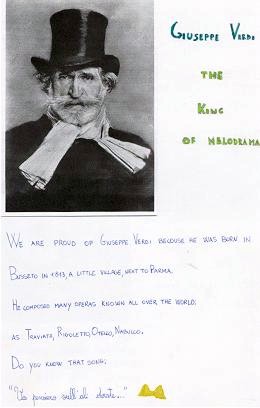 GIUSEPPE VERDI
THE
KING
OF MELODRAMA
WE ARE PROUD OF GIUSEPPE VERDI BECOUSE HE WAS BORN IN
BUSSETO IN 1813, A LITTLE VILLAGE, NEXT TO PARMA.
HE COMPOSED MANY OPERAS KNOWN ALL OVER THE WORLD:
AS TRAVIATA, RIGOLETTO, OTELLO, NABUCCO.
DO YOU KNOW THAT SONG:
"Va pensiero sull'ali dorate..."